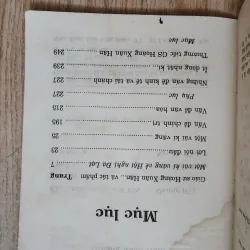 Mục lục
Trang
Giáo sư Hoàng Xuân Hãn... và tác phẩm
Một vài kí vãng về Hội nghị Đà Lạt 7
Lời nói đầu 23
Một vài kí vãng 25
Vấn đề chính trị 195
Vấn đề văn hóa 215
Phụ lục 227
Những vấn đề kinh tế và tài chính 227
Ít dòng nhật kí 239
Thương tiếc GS Hoàng Xuân Hãn 249
Mục lục